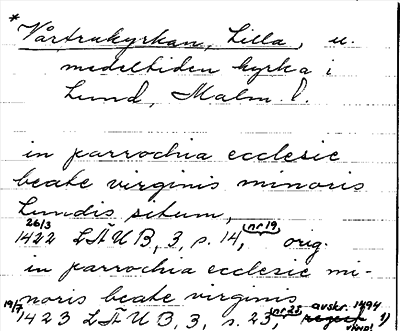 *Vårfrukyrkan, Lilla, u.
medeltiden kyrka i
Lund, Malm. l.
in parrochia ecclesie
beate virginis minoris
Lundis situm,
26/3
1422 LÄUB, 3, s. 14, nr 19, orig.
in parrochia ecclesie mi-
noris beate virginis
19/7 1423 LÄUB, 3, s. 23, nr 25, avskr. 1494 1)